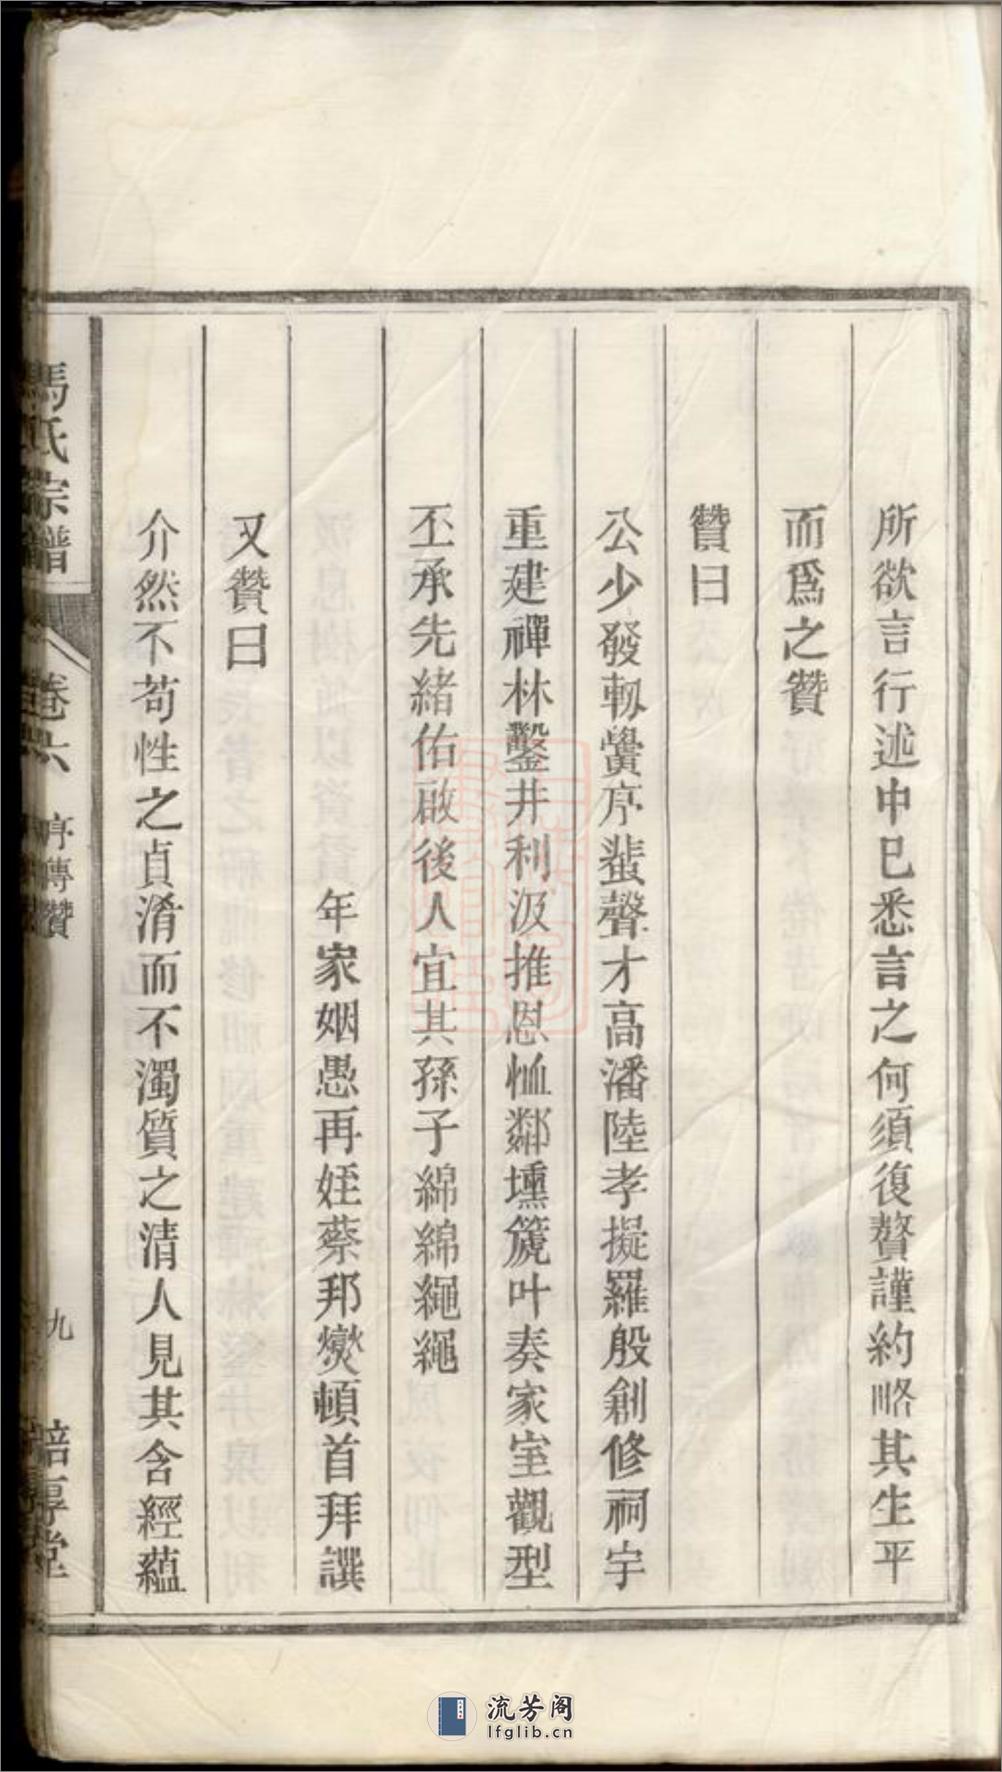 所欲言行述中已悉言之何須復贅謹約略其生平
而為之贊
贊曰
公少發軔黌序蜚聲才高潘陸孝擬羅殷創修祠宇
重建禪林鑿井利汲推恩恤鄰壎篪叶奏家室觀型
丕承先緒佑啟後人宜其孫子綿綿繩繩
年家姻愚再姪蔡邦燮頓首拜譔
又贊曰
介然不苟性之貞淆而不濁質之清人見其含經蘊
馬氏宗譜
卷六
序傳贊
九
流芳阁
lfglib.cn